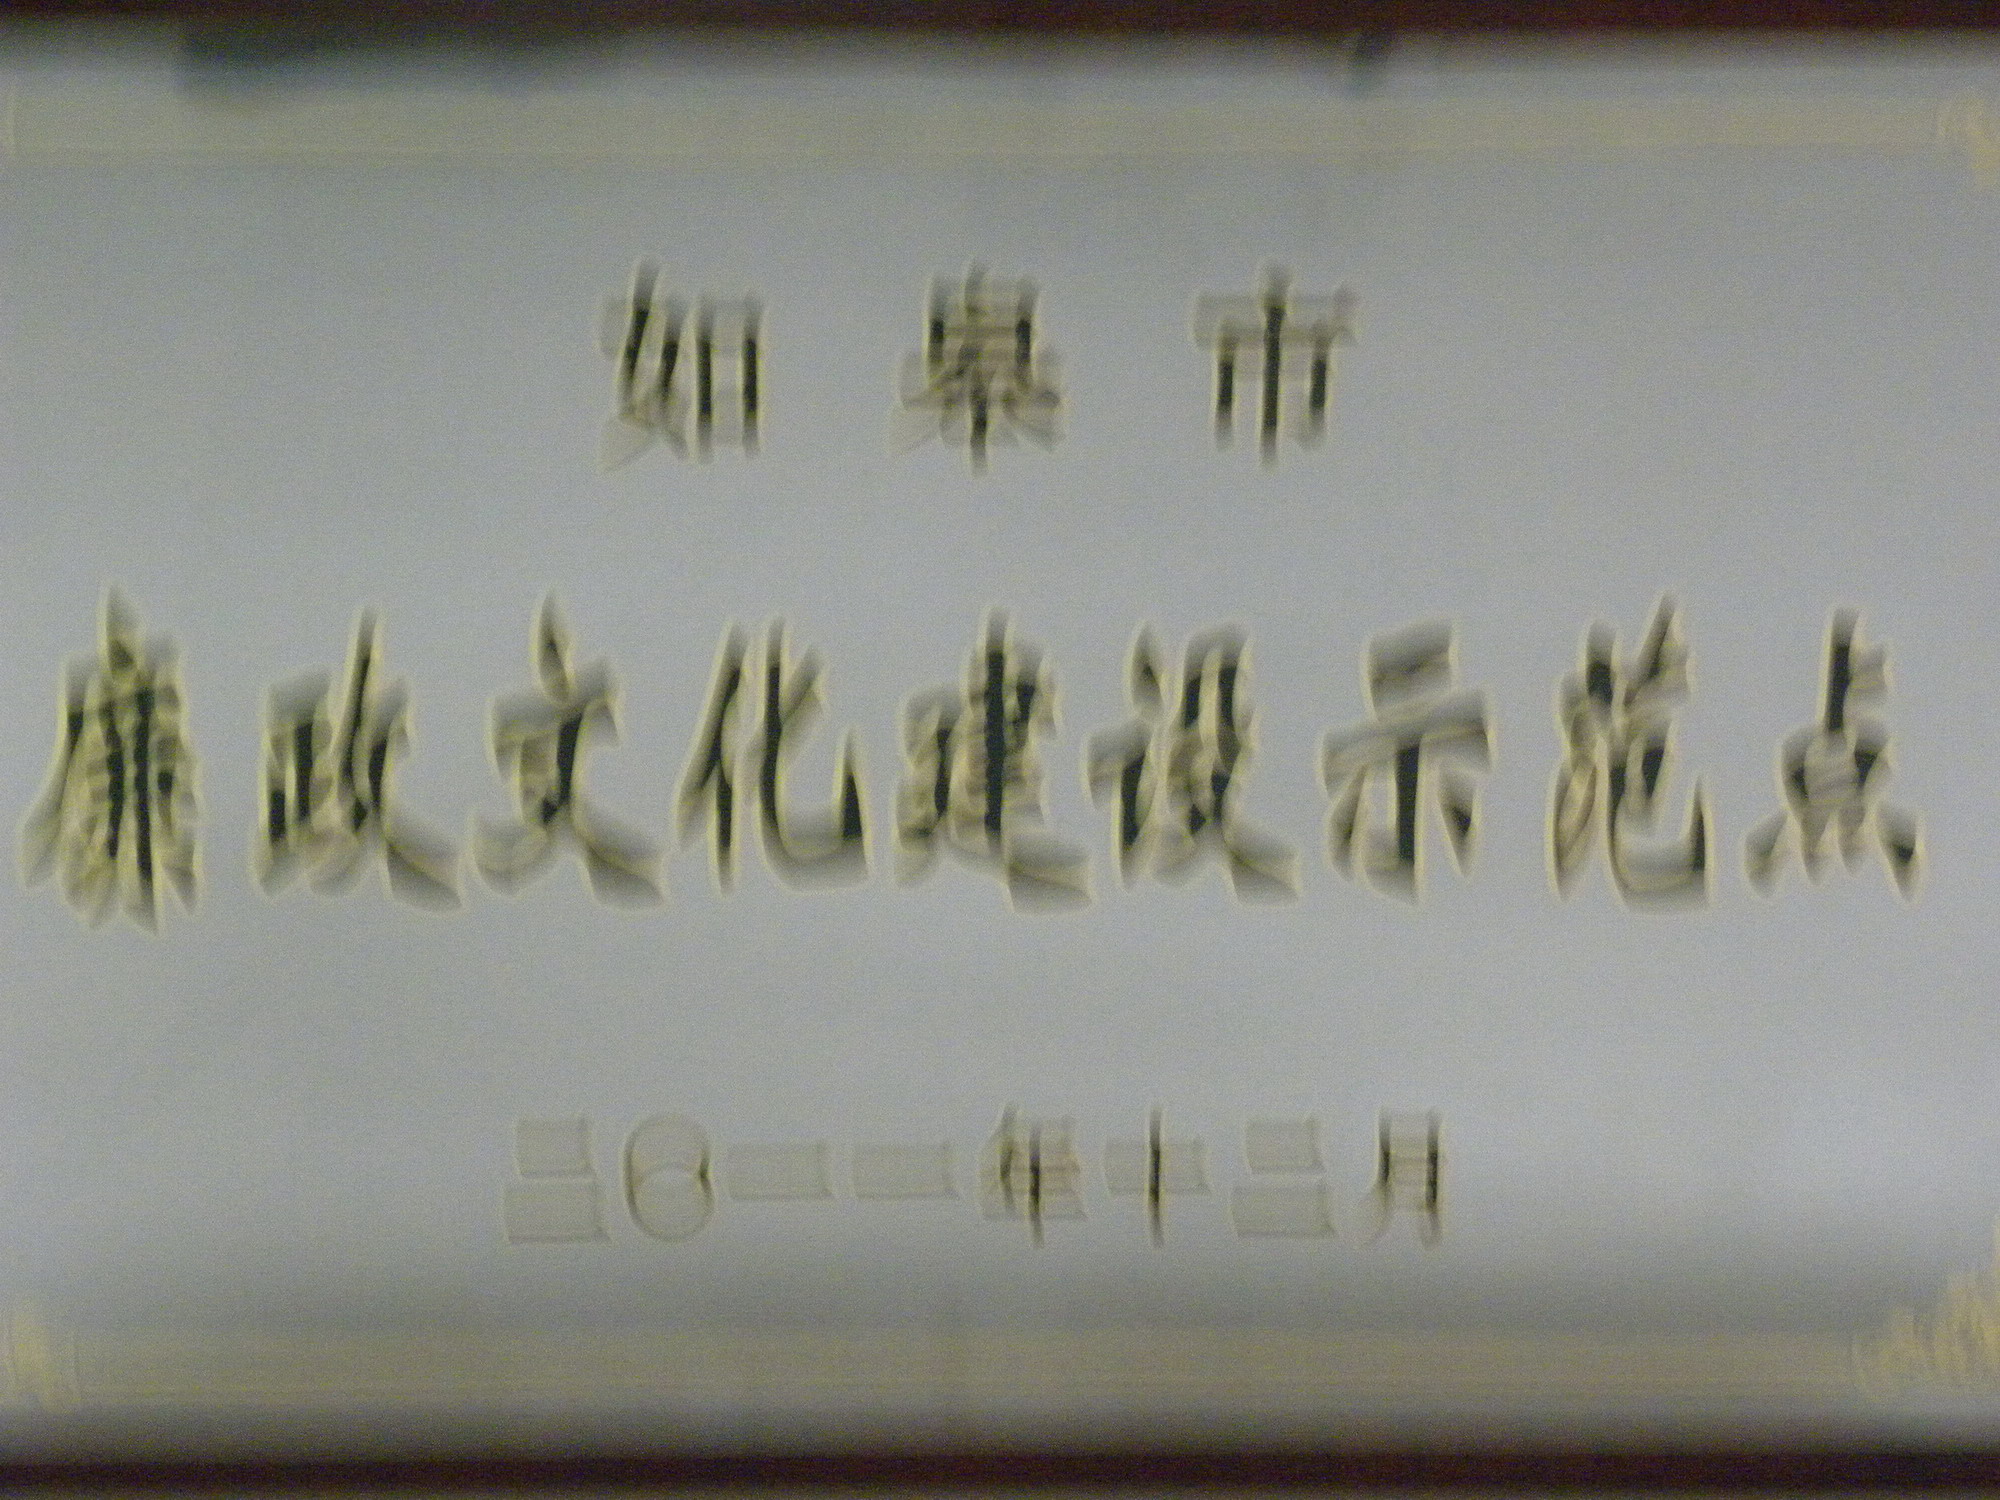 如皋市
廉政文化建设示范点
二〇一一年十二月